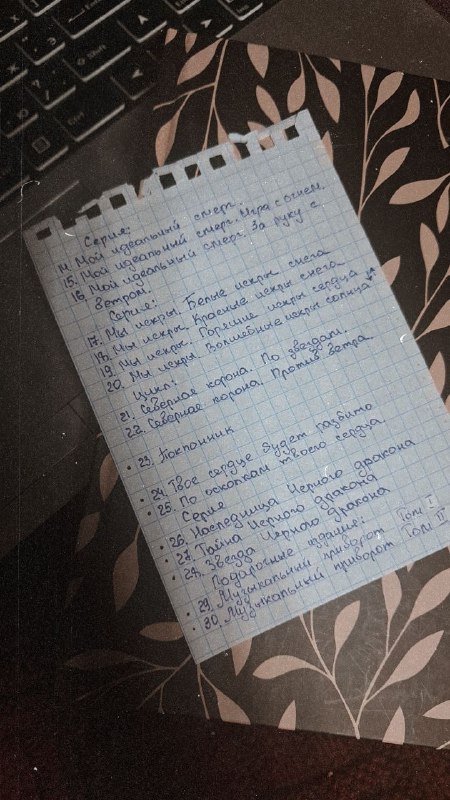 Серия:
14. Мой идеальный смерч.
15. Мой идеальный смерч. Игра с огнем.
16. Мой идеальный смерч. За руку с
ветром.
Серия:
17. Мы искры. Белые искры снега
18. Мы искры. Красные искры снега
19. Мы искры. Горящие искры сердца
20. Мы искры. Волшебные искры солнца
Цикл:
21. Северная корона. По звездам.
22. Северная корона. Против ветра.
23. Поклонник
24. Твое сердце будет разбито
25. По осколкам твоего сердца
Серия
26. Наследница Черного дракона
27. Тайна Черного дракона
28. Звезда Черного дракона
Подарочные издания:
29. Музыкальный приворот Том I
30. Музыкальный приворот Том II
Shift
Ctrl